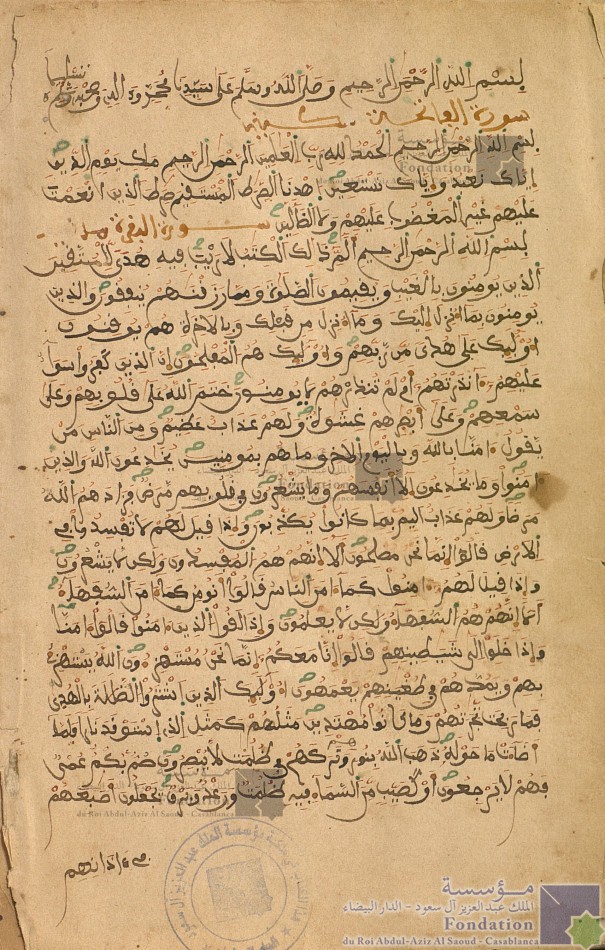 بسم الله الرحمن الرحيم وصلى الله وسلم على سيدنا محمد وءاله وصحبه وسلم تسليما
سورة الفاتحة
بسم الله الرحمن الرحيم الحمد لله رب العلمين الرحمن الرحيم ملك يوم الدين
إياك نعبد وإياك نستعين اهدنا الصرط المستقيم صرط الذين أنعمت
عليهم غير المغضوب عليهم ولا الضالين سورة البقرة
بسم الله الرحمن الرحيم ألم ذلك الكتب لا ريب فيه هدى للمتقين
الذين يومنون بالغيب ويقيمون الصلوة ومما رزقنهم ينفقون والذين
يومنون بما أنزل إليك وما أنزل من قبلك وبالاخرة هم يوقنون
أولئك على هدى من ربهم وأولئك هم المفلحون إن الذين كفروا سواء
عليهم ءانذرتهم أم لم تنذرهم لا يومنون ختم الله على قلوبهم وعلى
سمعهم وعلى أبصرهم غشوة ولهم عذاب عظيم ومن الناس من
يقول ءامنا بالله وباليوم الاخر وما هم بمومنين يخدعون الله والذين
ءامنوا وما يخدعون إلا أنفسهم وما يشعرون في قلوبهم مرض فزادهم الله
مرضا ولهم عذاب اليم بما كانوا يكذبون وإذا قيل لهم لا تفسدوا في
الارض قالوا إنما نحن مصلحون ألا إنهم هم المفسدون ولكن لا يشعرون
وإذا قيل لهم ءامنوا كما ءامن الناس قالوا أنومن كما ءامن السفهاء
ألا إنهم هم السفهاء ولكن لا يعلمون وإذا لقوا الذين ءامنوا قالوا ءامنا
وإذا خلوا إلى شيطينهم قالوا إنا معكم إنما نحن مستهزءون الله يستهزئ
بهم ويمدهم في طغينهم يعمهون أولئك الذين اشتروا الضللة بالهدى
فما ربحت تجرتهم وما كانوا مهتدين مثلهم كمثل الذي استوقد نارا فلما
أضاءت ما حوله ذهب الله بنورهم وتركهم في ظلمت لا يبصرون صم بكم عمي
فهم لا يرجعون أو كصيب من السماء فيه ظلمت ورعد وبرق يجعلون أصبعهم
في ءاذانهم
مؤسسة
الملك عبد العزيز آل سعود - الدار البيضاء
Fondation
du Roi Abdul-Aziz Al Saoud - Casablanca